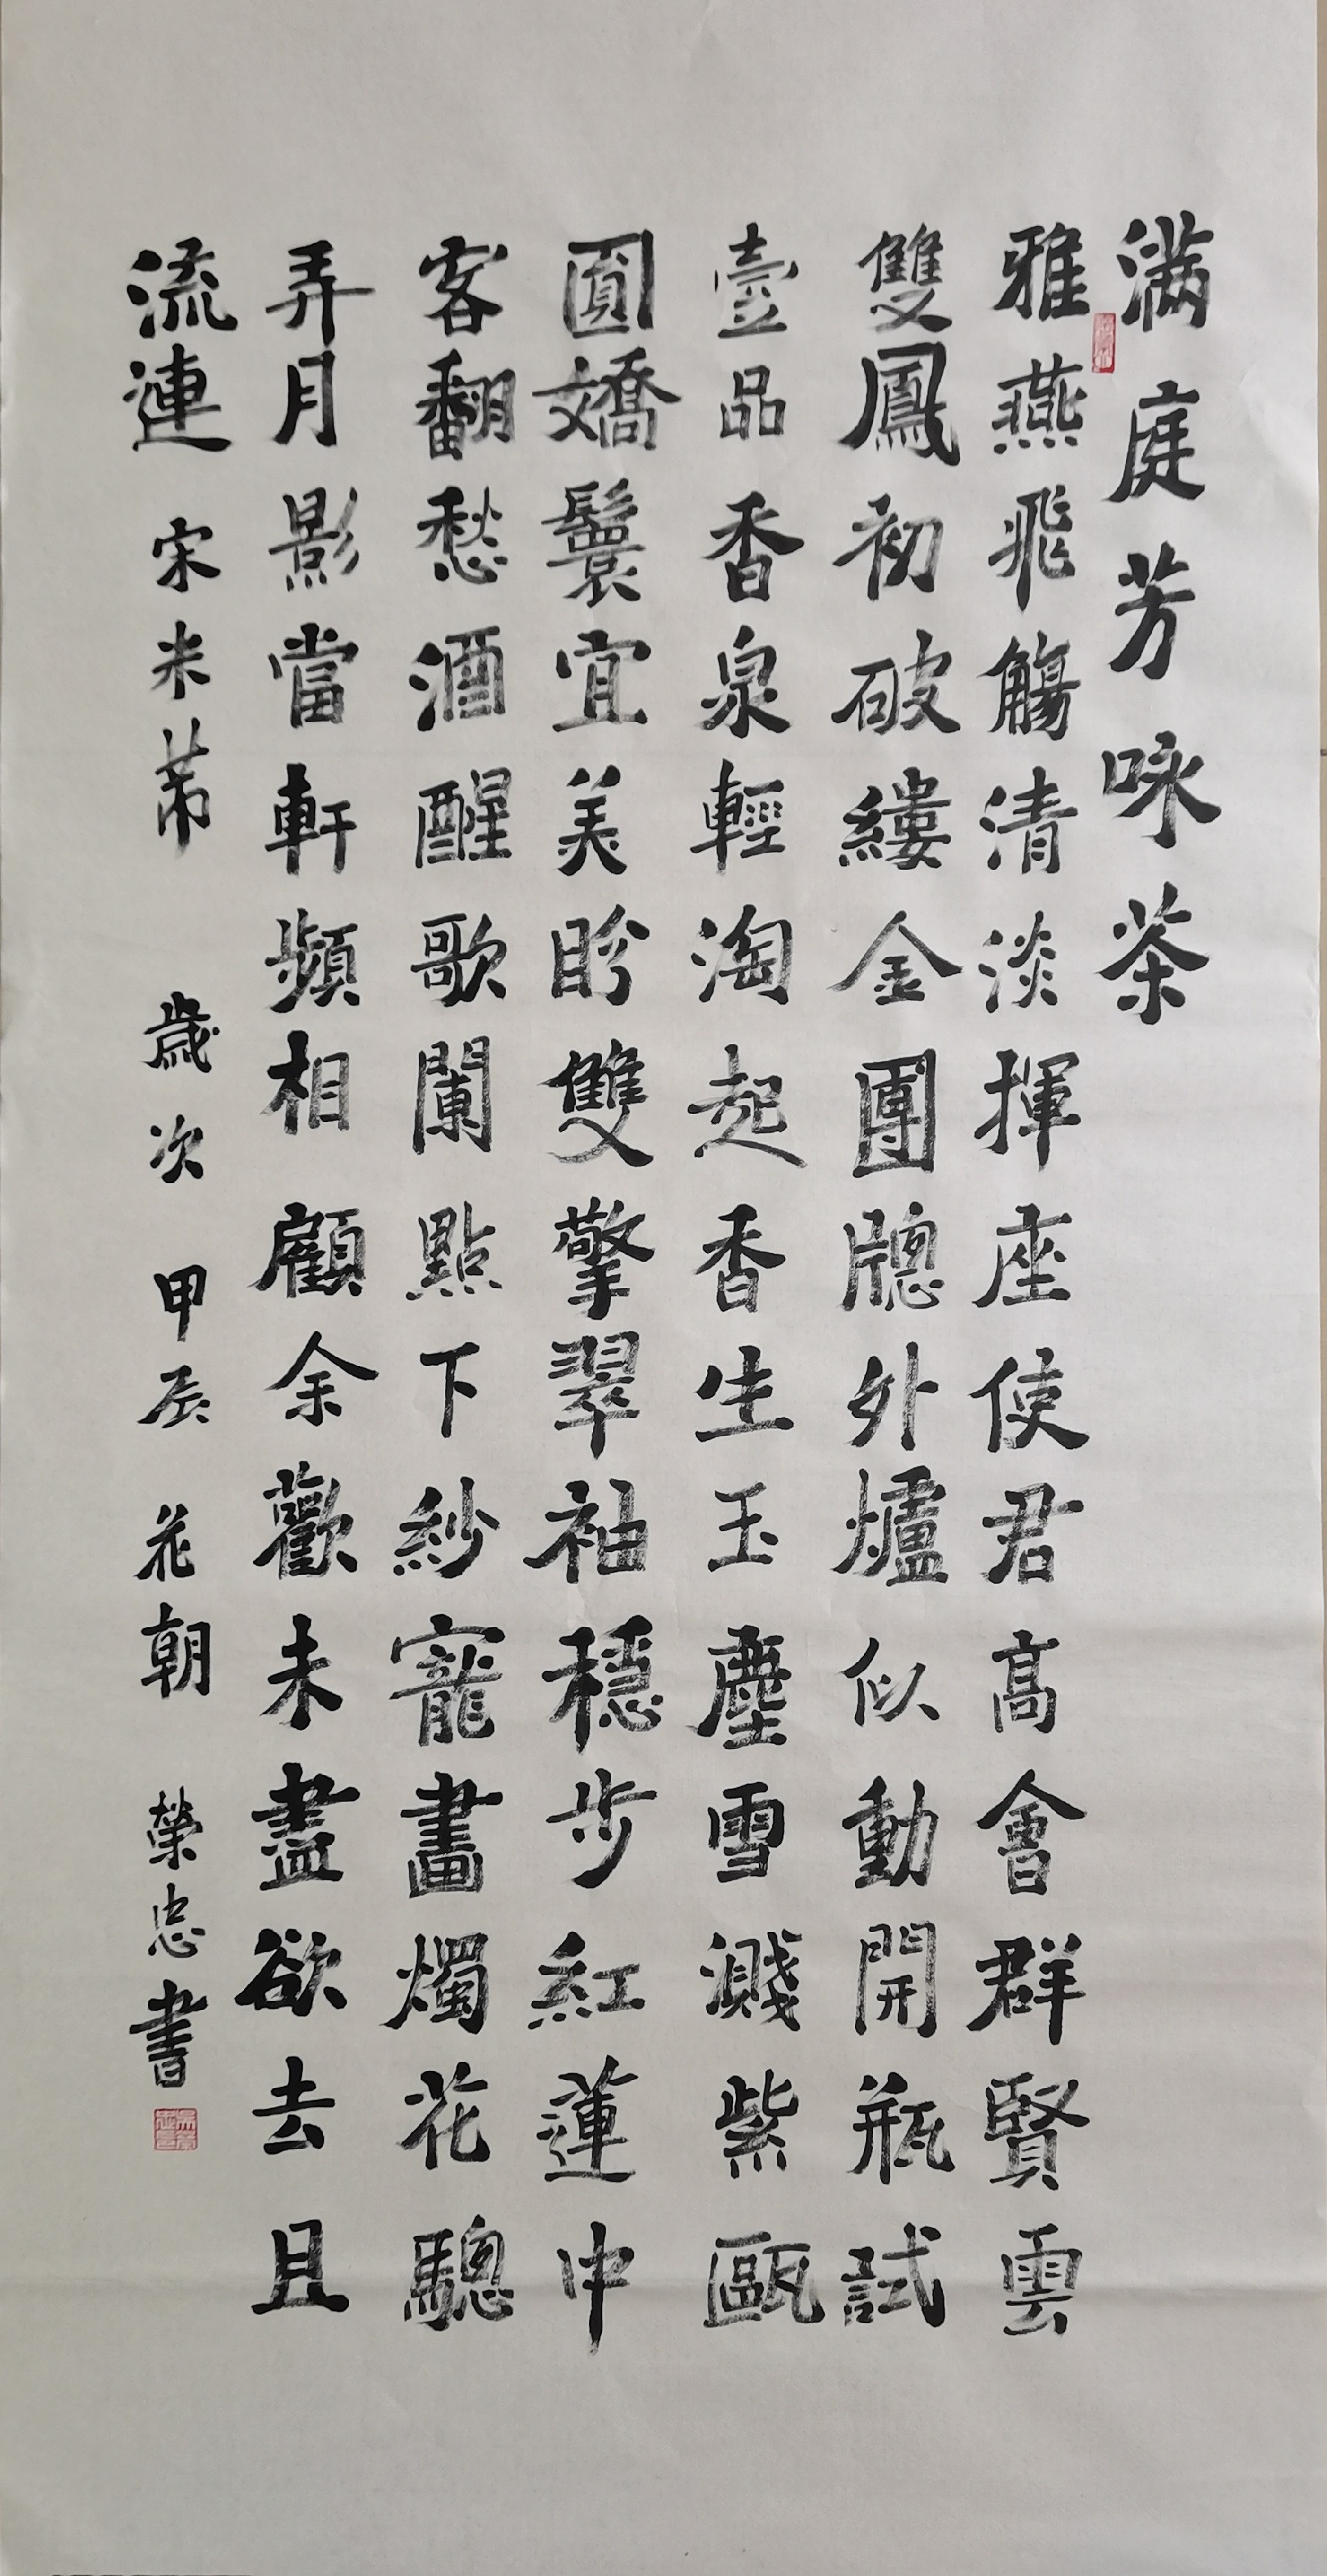 满庭芳咏茶
雅燕飛觴清淡揮座使君高會群賢雲
雙鳳初破縷金團牕外爐似動開瓶試
壹品香泉輕淘起香生玉塵雪濺紫甌
圓嬌鬟宜美盼雙擎翠袖穩步紅蓮中
客翻愁酒醒歌闌點下紗寵畫燭花驄
弄月影當軒頻相顧余歡未盡欲去且
流連 宋米芾 歲次甲辰花朝 榮忠書